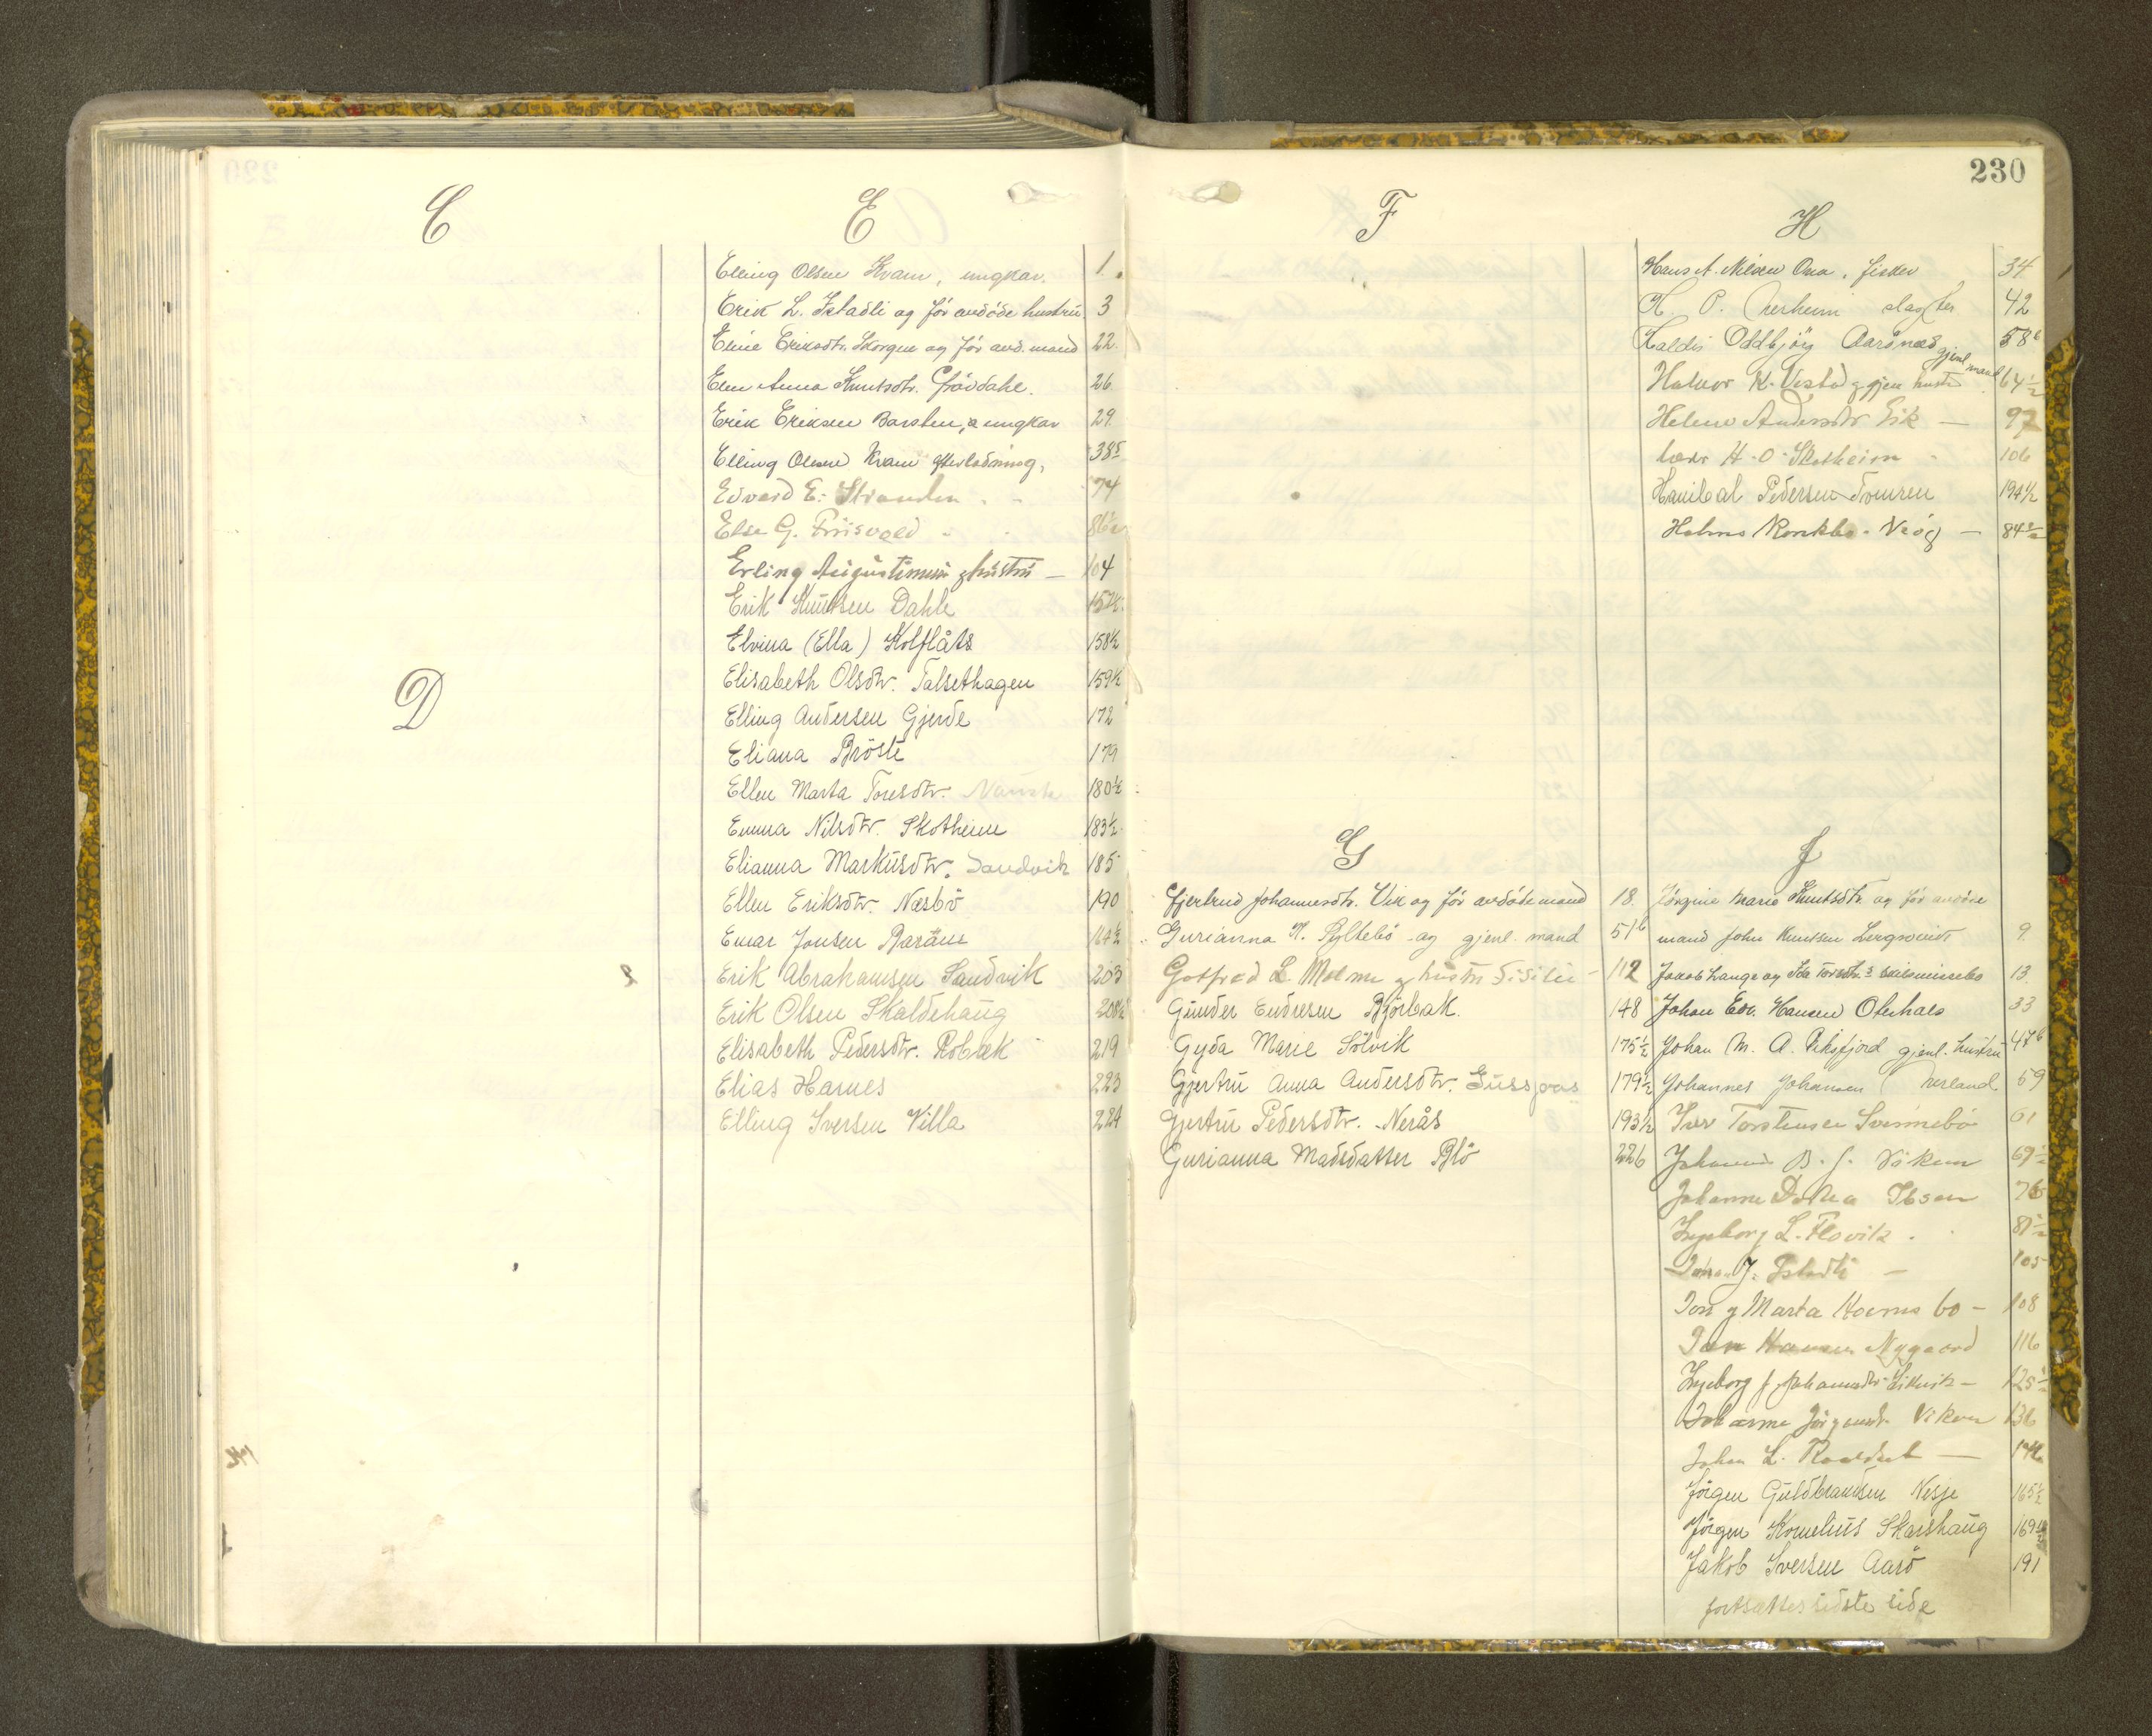 C
D
E
Elling Olsen Kvam, ungkar. 1.
Erik L. Istadli og før avdøde hustru 3
Eline Eriksdtr. Skorgen og før avd. mand 22.
Elen Anna Knutsdtr. Grøvdahl. 26
Erik Eriksen Barsten, ungkar 29.
Elling Olsen Kvam efterlodning, 38
Edvard E. Stranden 74
Else G. Friisvold 86
Erling Augustinius g hustru — 104
Erik Knutsen Dahle 157½
Elvina (Ella) Kolflåts 158½
Elisabeth Olsdtr. Talsethagen 159½
Elling Andersen Gjerde 172
Eliana Brøste 179
Ellen Marta Toresdtr. 180½
Emma Nilsdtr. Skotheim 183½
Elianna Markusdtr. Sandvik 185
Ellen Eriksdtr. Næsbø 190
Einar Jonsen 164½
Erik Abrahamsen Sandvik 203
Erik Olsen Skaldehaug 208½
Elisabeth Pedersdtr. Robæk 219
Elias Harnes 223
Elling Iversen Villa 224
F
G
Gjertrud Johannesdtr. Vik og før avdøde mand 18.
Gurianna K. Syltebø og gjenl. mand 51⁶
Gotfred L. Malme g hustru 112
Gunder Endresen Bjørbak. 148
Gyda Marie Sølvik 175½
Gjertru Anna Andersdtr. 179½
Gjertru Pedersdtr. Nerås 193½
Gurianna Madsdatter Blø 226
230
H
Hans A. Nilsen Ona, fisker 34
H. P. Nerheim slagter 42
Haldis Oddbjørg Aarønæs 58⁶
gjenl mand
Halvor K. Vestad g gjen hustr 64½
Helene Andersdtr Eik — 97
H. O. Skotheim 106
Hanibal Pedersen Tomren 194½
Holmo — 84½
J
Jørgine Marie Knutsdtr. og før avdøde
mand John Knutsen 9.
Jakob Lange og Ida Torsdtr.s skilsmissebo 13.
Johan Edv. Hansen Oterhals 33
Johan M. A. Riksfjord gjenl. hustru 47⁶
Johannes Johansen Nerland 59
Iver Torstensen Svinnebø 61
B. J. Viken 69½
Johanne Ibsen 76
Ingeborg L. Flovik. 81½
J. Istadli — 105
Jon g Marta 108
Jon Hansen Nygaard 116
Ingeborg J. Johannesdtr — 125½
Johanne Jørgensdtr. Viken 136
Johan L. — 146
Jørgen Guldbrandsen Nesje 165½
Jørgen Kornelius Skarshaug 169½
Jakob Iversen Aarø 191
fortsættes sidste side